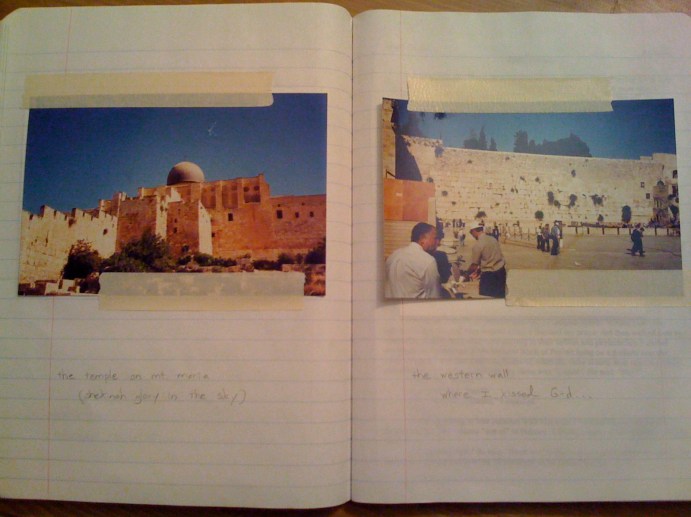 the temple on mt. moria
(shekinah glory in the sky)
the western wall
where I kissed G-d...